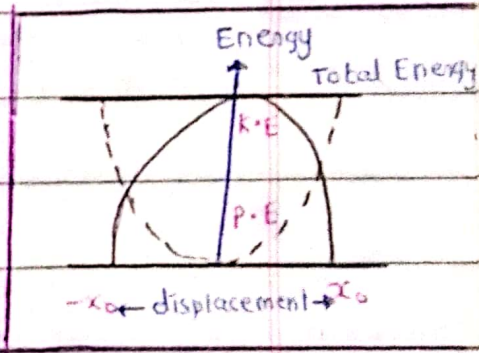 Energy
Total Energy
K.E
P.E
-x₀ ← displacement → x₀